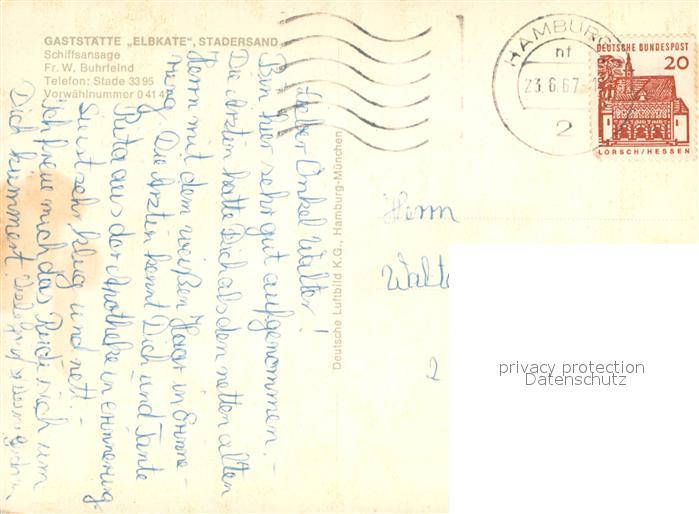 GASTSTÄTTE „ELBKATE", STADERSAND
Schiffsansage
Fr. W. Buhrfeind
Telefon: Stade 33 95
Vorwählnummer 0 41 41
Lieber Onkel Walter!
Bin hier sehr gut aufgenommen. –
Die Ärztin hatte Dich als den netten alten
Herrn mit dem weißen Haar in Erinne-
rung. Die Ärztin kennt Dich und Tante
Rita aus der Apotheke in Erinnerung
Sie ist sehr klug und nett.
Ich freue mich das sich um
Dich kümmert.
Deutsche Luftbild K.G., Hamburg-München
HAMBURG
nf
23.6.67
2
DEUTSCHE BUNDESPOST
20
LORSCH/HESSEN
Herrn
Walte
2
privacy protection
Datenschutz